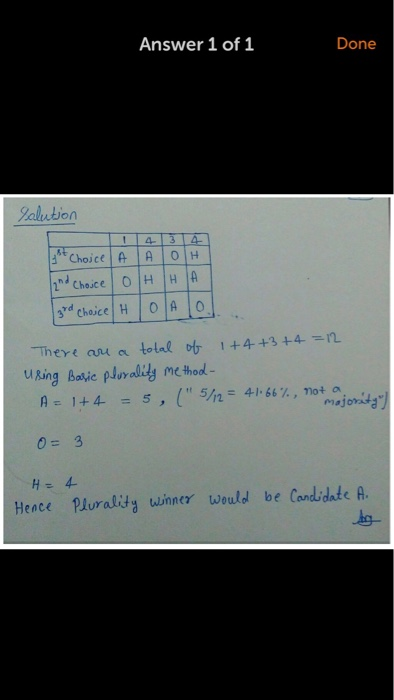 Answer 1 of 1 Done
Solution
1 4 3 4
1st Choice A A O H
2nd Choice O H H A
3rd Choice H O A O
There are a total of 1+4+3+4 = 12
Using Basic plurality method-
A = 1+4 = 5, (" 5/12 = 41.66%, not a
majority")
O = 3
H = 4
Hence Plurality winner would be Candidate A.